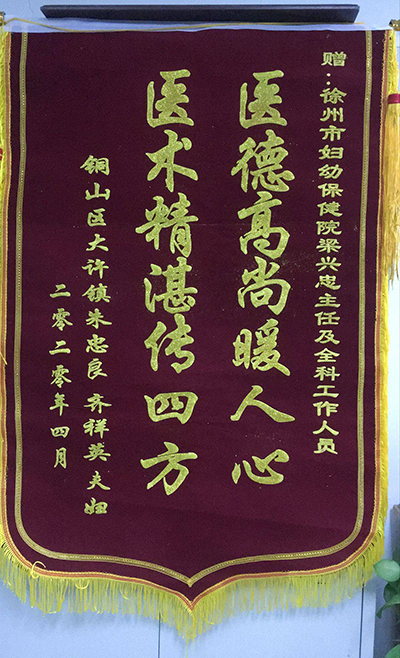 赠：徐州市妇幼保健院梁兴忠主任及全科工作人员
医德高尚暖人心
医术精湛传四方
铜山区大许镇朱忠良 齐祥英夫妇
二零二零年四月